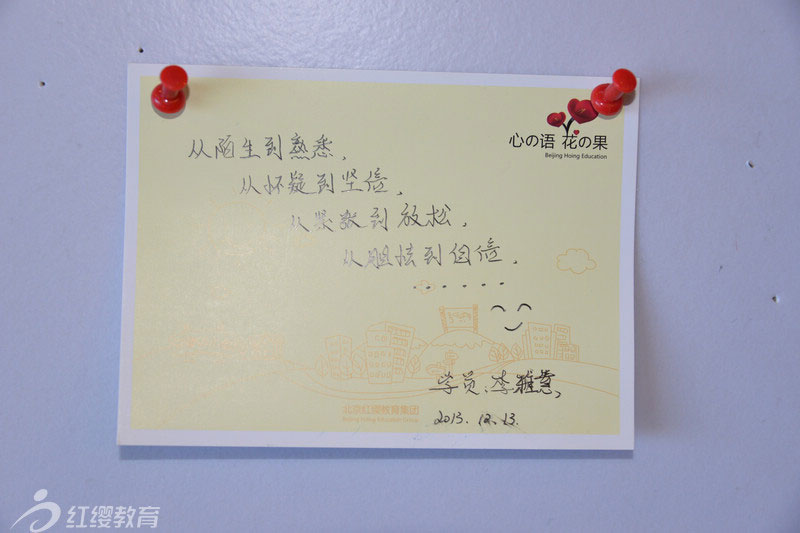 心の语 花の果
Beijing Hoing Education
从陌生到熟悉,
从怀疑到坚信,
从紧张到放松,
从胆怯到自信,
......
学员:李雅慧,
2013.12.13.
北京红缨教育集团
Beijing Hoing Education Group
红缨教育